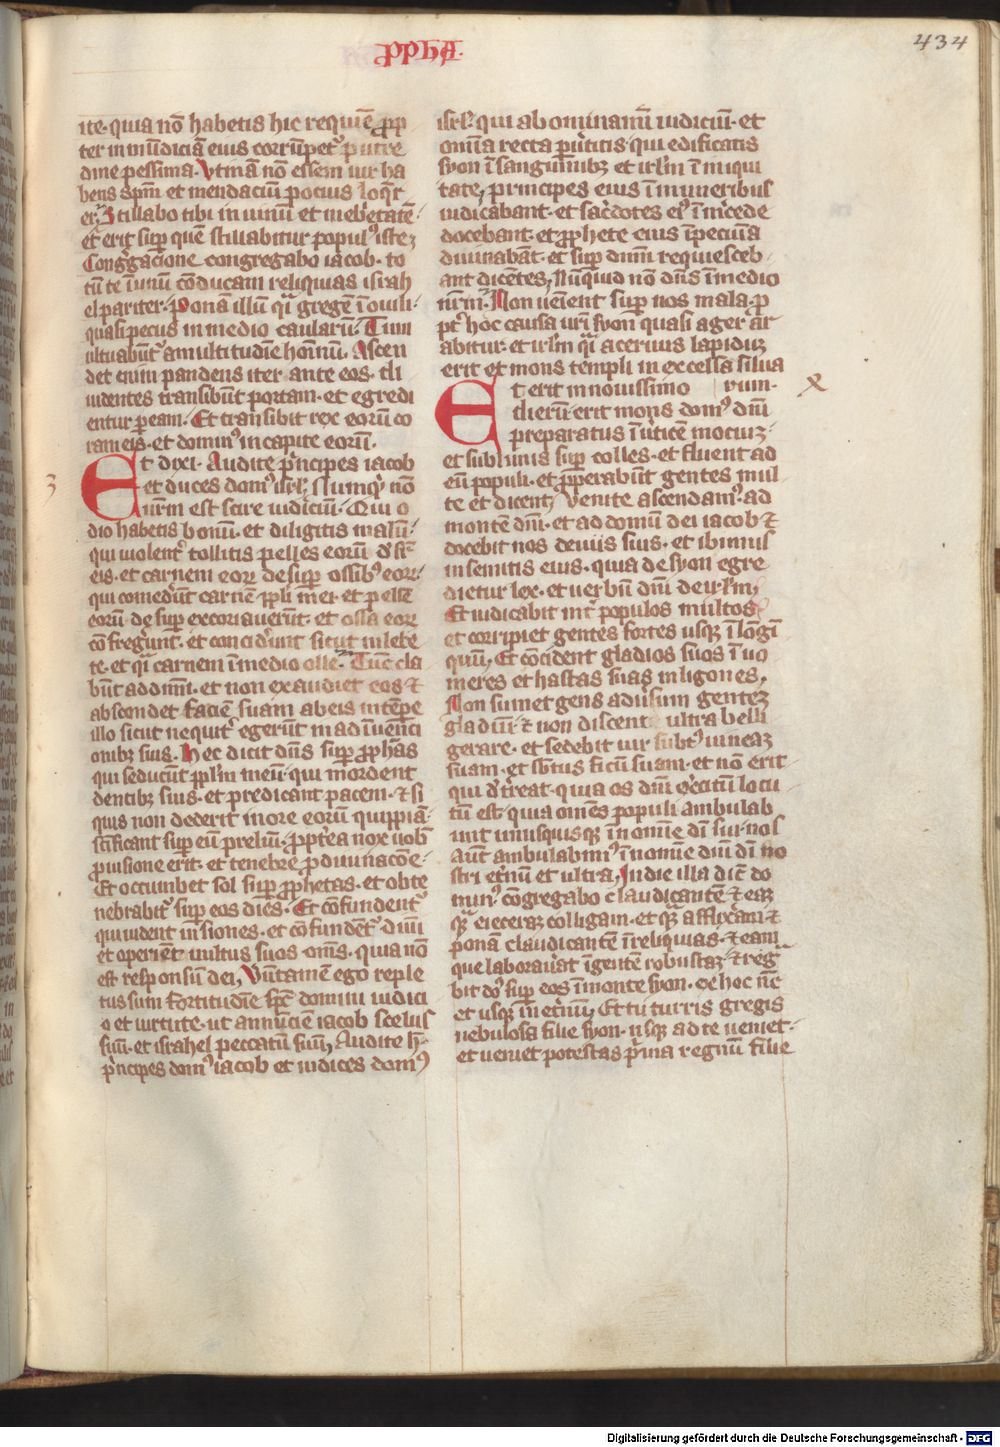 pph̄a.
434
ite· quia nō habetis hic requiē ꝓp
ter inmūdiciā eius corrūpetᷣ putre
dine pessima. Vtinā nō essem uir ha
bens spm̄ et mendaciū pocius loqͣr
er. Stillabo tibi in uinū et in ebetatē·
et erit suꝑ quē stillabitur populꝰ iste;
Congͣgacione congregabo iacob· to
tū te ī unū cōducam reliquias israh
el pariter. Ponā illū qͣi gregē ī ouili·
quasi pecus in medio caularū. Tum
ultuabūt a multitudīe hoīnū. Ascen
det enim pandens iter ante eos· di
uidentes transibūt portam· et egredi
entur ꝑ eam. Et transibit rex eorū co
ram eis· et dominꝰ in capite eorū.
3
Et dixi. Audite pͥncipes iacob
et duces domꝰ isrl̄, Numqͥd nō
urm̄ est scire iudiciū. Qui o
dio habetis bonū· et diligitis malū·
qui uiolentͥ tollitis pelles eorū dͤ sꝑ
eis· et carnem eoꝝ de suꝑ ossibꝰ eoꝝ·
qui comedͤūt carnē ppl̄i mei· et pellē
eorū de suꝑ excoriauerūt· et ossa eoꝝ
cōfregͤunt· et concidͤunt sicut in lebe
te· et qͣi carnem ī medio olle. Tūc cla
būt ad dnm̄· et non exaudiet eos ⁊
abscondet faciē suam ab eis in tēpe
illo sicut nequitͥ egerūt in adīuenci
onibꝫ suis. Hec dicit dn̄s suꝑ ꝓphās
qui seducūt ppl̄m meū· qui mordent
dentibꝫ suis· et predicant pacem· ⁊ si
quis non dederit in ore eorū quippiā·
scīficant suꝑ eū preliū. ꝓptͤea nox uob̄
ꝓ uisione erit· et tenebre ꝓ diuinacōe·
Et occumbet sol suꝑ ꝓphetas· et obte
nebrabitᷣ suꝑ eos dies. Et cōfundentᷣ
qui uident uīsiones· et cōfundētᷣ diuīi
et operiēt uultus suos om̄s· quia nō
est responsū dei, Vūtamen ego reple
tus sum fortitudīe spc̄ domini iudici
o et uirtute· ut annūciē iacob scelus
suū· et israhel peccatū suū, Audite h̄·
pͥncipes domꝰ iacob et iudices domꝰ
isrl̄· qui abominamī iudiciū· et
omīa recta ꝑuͤtitis· qui edificatis
syon ī sanguinibꝫ et irl̄m ī iniqui
tate, principes eius ī muneribus
iudicabant· et sacͤdotes eiꝰ ī mͤcede
docebant· et ꝓphete eius ī pecuīa
diuinabāt· et suꝑ dnm̄ requiesceb
ant dicētes, Nūqͥud nō dn̄s ī medio
nr̄m. Non ueīent suꝑ nos mala· ꝓ
ptͤ hoc causa urī syon quasi ager ar
abitur· et irl̄m qͣi aceruus lapidū
erit et mons templi in excelsa silua
Et erit in nouissimo rum·
x
dierū· erit mons domꝰ dnī
preparatus ī uͤtice mociū·
et sublimis suꝑ colles· et fluent ad
eū populi· et ꝓperabūt gentes mul
te et dicent, Venite ascendamꝰ ad
montē dnī· et ad domū dei iacob ⁊
docebit nos de uiis suis· et ibimus
in semitis eius· quia de syon egre
dietur lex· et uerbū dnī de irl̄m,
Et iudicabit intͤ populos multos
et corripiet gentes fortes usqꝫ ī lōgī
quū, Et cōcident gladios suos ī uo
meres et hastas suas in ligones,
Non sumet gens aduͤsum gentē
gladiū· ⁊ non discent ultra belli
gerare· et sedebit uir subtꝰ uineā
suam· et sbtus ficū suam· et nō erit
qui dͤtͤreat· quia os dnī exͤcituū locu
tū est· quia omēs populi ambulab
unt unusquisqꝫ ī nomīe dī sui· nos
aūt ambulabimꝰ ī nomīe dnī dī no
stri etͤnū et ultra, In die illa dic̄t do
minꝰ cōgregabo claudicantē ⁊ eā
qͣ eiecerā colligam· et qͣ afflixerā ⁊
ponā claudicantē ī reliquias· ⁊ eam
que laborauͤat ī gentē robustā· ⁊ reg
bit dōs suꝑ eos ī monte syon· ex hoc nc̄
et usqꝫ in etͤnū, Et tu turris gregis
nebulosa filie syon· usqꝫ ad te ueniet·
et ueniet potestas pͥma regnū filie
Digitalisierung gefördert durch die Deutsche Forschungsgemeinschaft - DFG